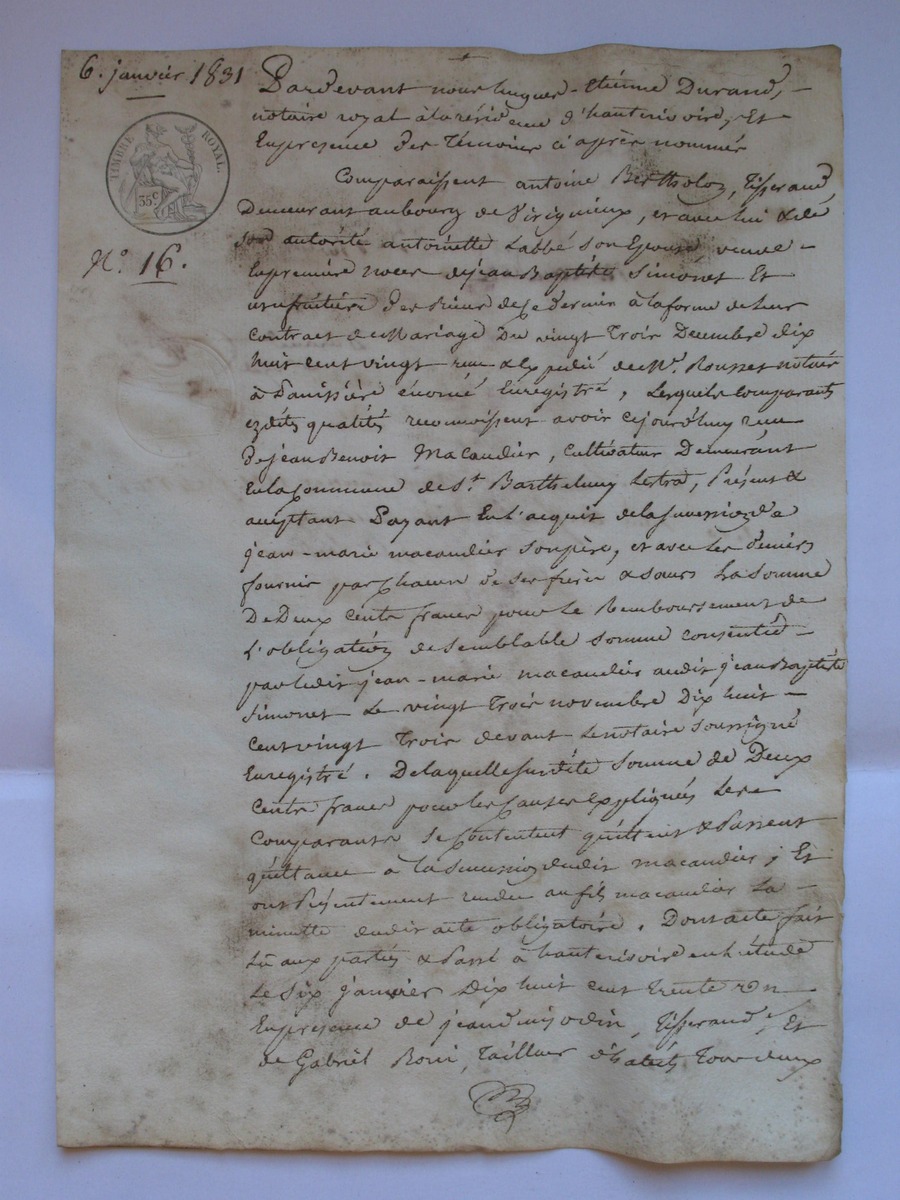 6. janvier 1831
Pardevant nous hugues-Etienne Durand,
notaire royal à la résidence d'hauterivoire, Et
En présence des Témoins ci après nommés
TIMBRE ROYAL.
35c
Comparaissent antoine Bertholon, Tisserand,
Demeurant au bourg de Virigneux, et avec lui & de
son autorité antoinette Labbé son Epouse veuve
N.° 16.
En première noces de jean Baptiste Simonet Et
usufruitière des biens de ce dernier à la forme de leur
contract de Mariage Du vingt Trois Decembre dix
huit cent vingt un Expédié de Me. Rousset notaire
à Panissière énoncé Enregistré, Lesquels Comparants
ezdits qualités reconnoissent avoir cejourd'huy reçu
de jean Benoit Macaudier, Cultivateur Demeurant
En la Commune de St. Barthelemy Lestra, Présent &
acceptant Payant En L'acquit de la Succession de
jean-marie macaudier son père, et avec les deniers
fournis par Chacun de ses frères & sœurs La Somme
De Deux Cents francs pour le Remboursement de
L'obligation de Semblable Somme consentie
par ledit jean-marie macaudier audit jean Baptiste
Simonet Le vingt Trois novembre Dix huit
Cent vingt Trois devant Le notaire Soussigné
Enregistré. De laquelle susdite Somme de Deux
Cents francs pour les Causes Expliquées Les
Comparants Se Contentent quittent & Passent
quittance à la Succession dudit macaudier ; Et
ont Présentement rendu au fils macaudier La
minutte dudit acte obligatoire. Dont acte fait
Lû aux parties & Passé à hauterivoire en L'étude
Le Six janvier Dix huit cent trente un
En présence de jean Tisserand, Et
de Gabriel Tailleur Tous deux